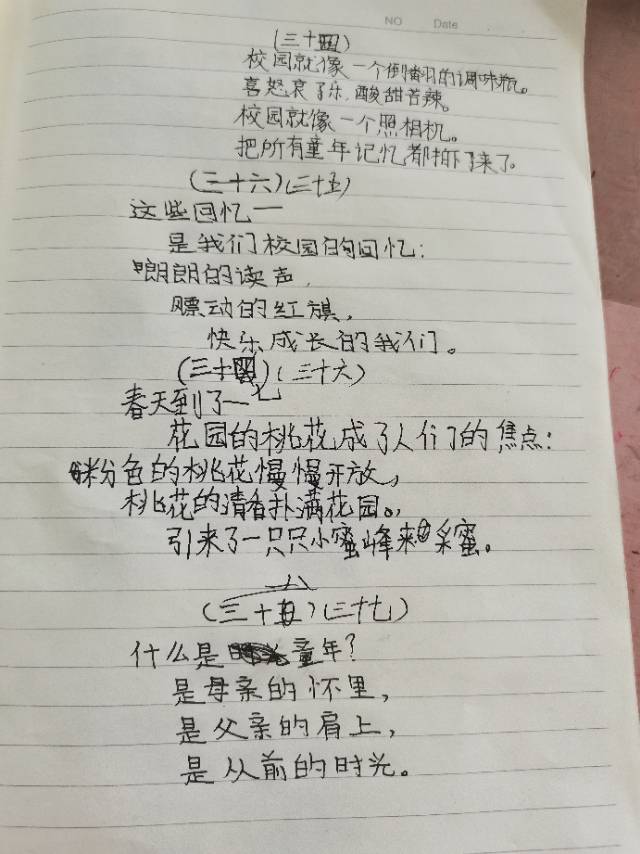 NO Date
(三十四)
校园就像一个倒翻的调味瓶。
喜怒哀了乐,酸甜苦辣。
校园就像一个照相机。
把所有童年记忆都拍了来了。
(三十六)(三十五)
这些回忆一
是我们校园的回忆:
朗朗的读声,
飘动的红旗,
快乐成长的我们。
(三十四)(三十六)
春天到了一
花园的桃花成了人们的焦点:
粉色的桃花慢慢开放,
桃花的清香扑满花园。,
引来了一只只小蜜峰来采蜜。
(三十五)(三十七)
什么是童年?
是母亲的怀里,
是父亲的肩上,
是从前的时光。